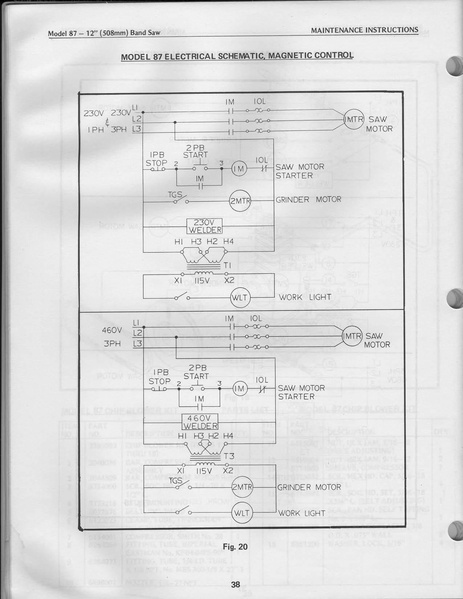 Model 87 — 12" (508mm) Band Saw
MAINTENANCE INSTRUCTIONS
MODEL 87 ELECTRICAL SCHEMATIC, MAGNETIC CONTROL
230V 230V L1
& L2
1PH 3PH L3
1M 1OL
MTR SAW MOTOR
1PB STOP
2
2PB START
3
1M
1OL
SAW MOTOR STARTER
1M
TGS
2MTR
GRINDER MOTOR
230V WELDER
H1 H3 H2 H4
T1
X1 115V X2
WLT
WORK LIGHT
460V
3PH
L1
L2
L3
1M 1OL
MTR SAW MOTOR
1PB STOP
2
2PB START
3
1M
1OL
SAW MOTOR STARTER
1M
460V WELDER
H1 H3 H2 H4
T3
X1 115V X2
TGS
2MTR
GRINDER MOTOR
WLT
WORK LIGHT
Fig. 20
38